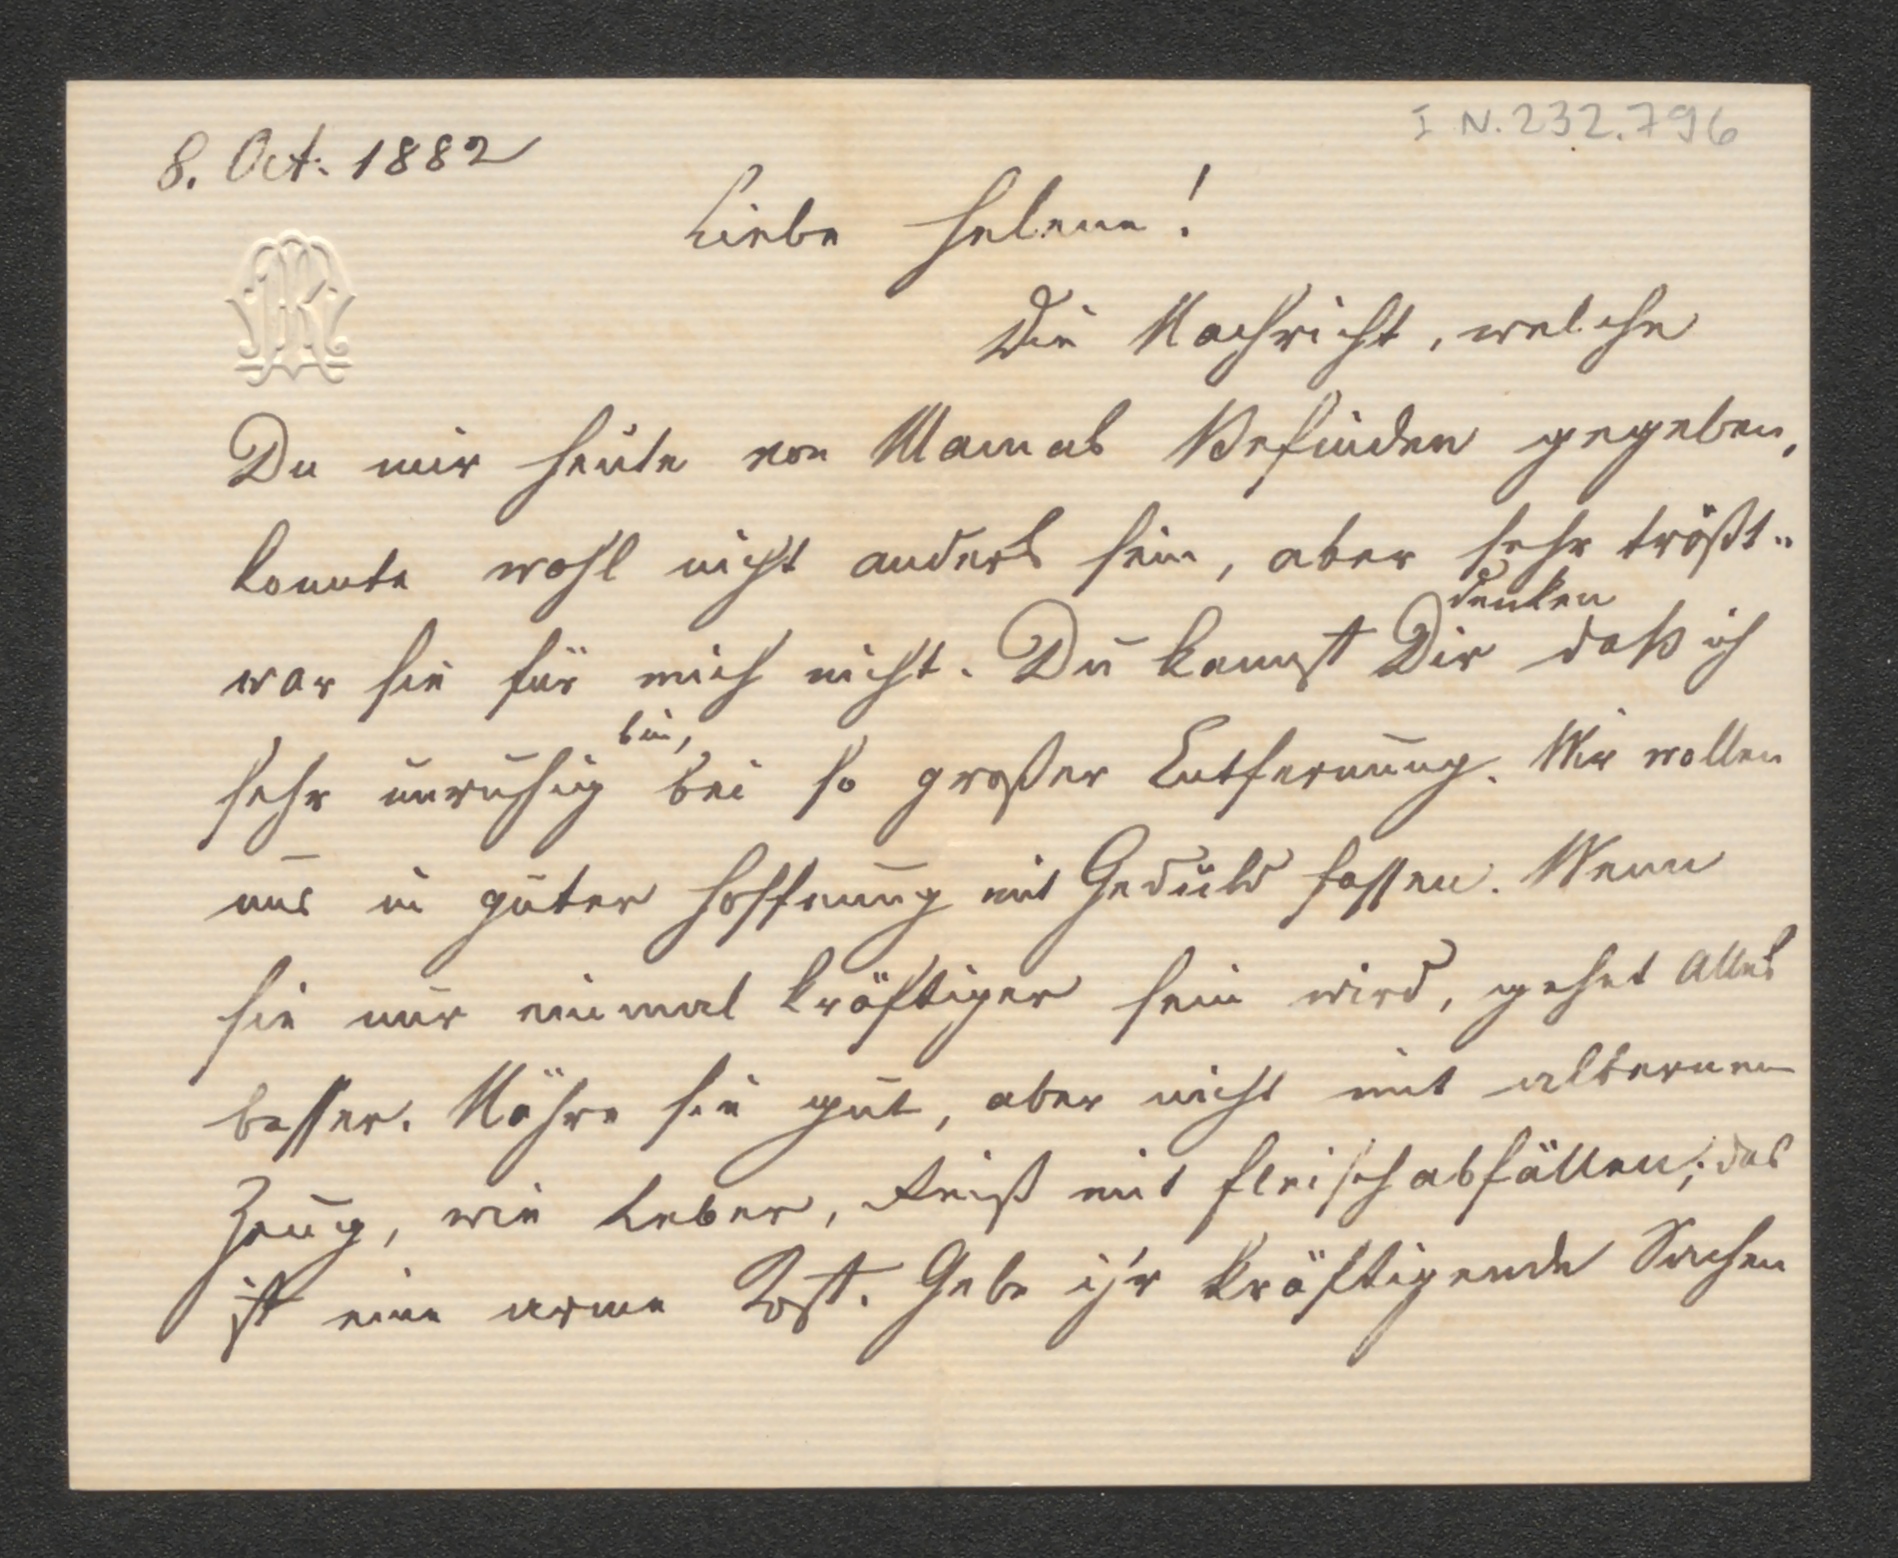 I N. 232.796
8. Oct. 1882
Liebe Helene!
Die Nachricht, welche
Du mir heute von Mamas Befinden gegeben,
konnte wohl nicht anders sein, aber sehr trößt-
war sie für mich nicht. Du kannst Dir denken daß ich
sehr unruhig bin, bei so großer Entfernung. Wir wollen
uns in guter Hoffnung mit Geduld fassen. Wenn
sie nur einmal kräftiger sein wird, gehet Alles
besser. Nähre sie gut, aber nicht mit albernem
Zeug, wie Leber, Reiß mit Fleischabfällen; das
ist eine arme Kost. Gebe ihr kräftigende Sachen